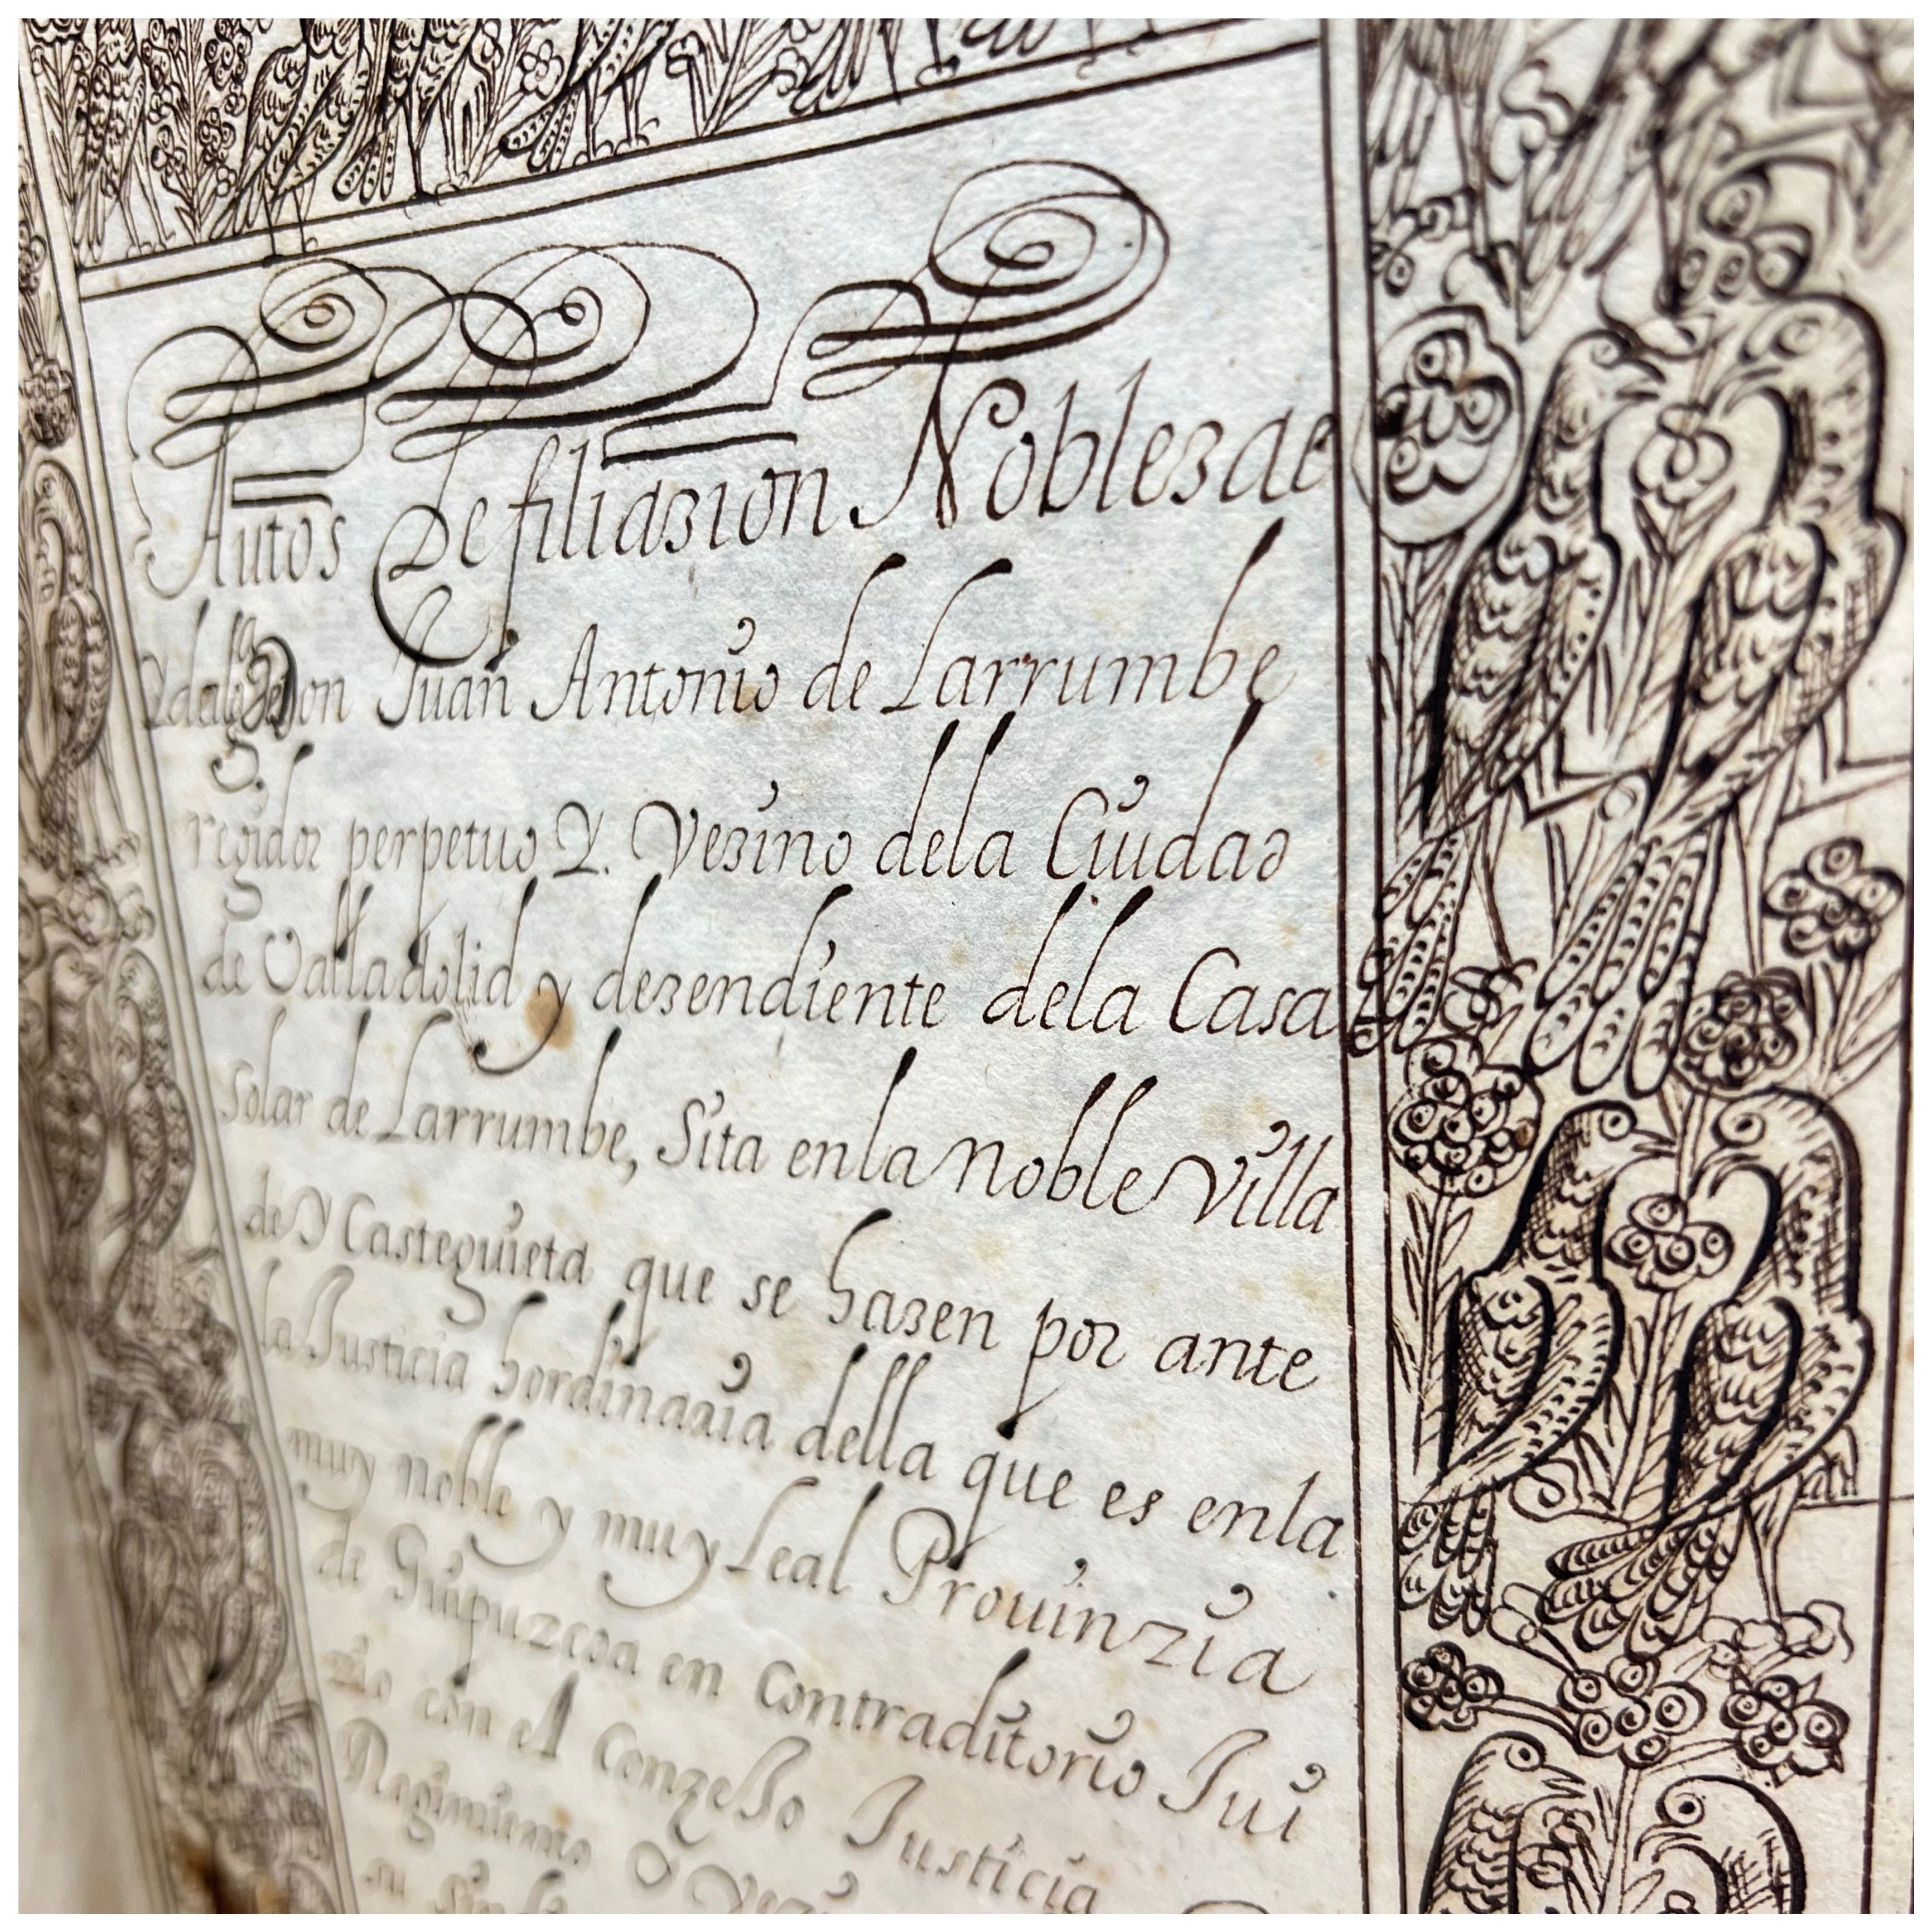 Autos De filiazion Noblezae
Ydalgª De Don Juan Antonio de Larrumbe
regidor perpetuo Y. Vezino dela Ciudad
de Valladolid y dezendiente dela Casa
Solar de Larrumbe, Sita enla noble Villa
de Y Casteguieta que se hazen por ante
la Justicia hordinaria della que es enla
muy noble y muy Leal Prouinzia
de Guipuzcoa en Contraditorio Jui
zio con el Conzejo Justicia
Regimiento Y Vezi
su